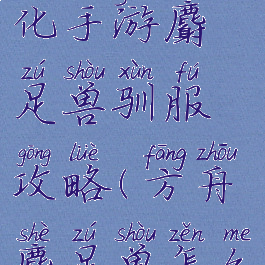 化手游麝
zú shòu xùn fú
足兽驯服
gōng lüè fāng zhōu
攻略(方舟
shè zú shòu zěn me
麝足兽怎么